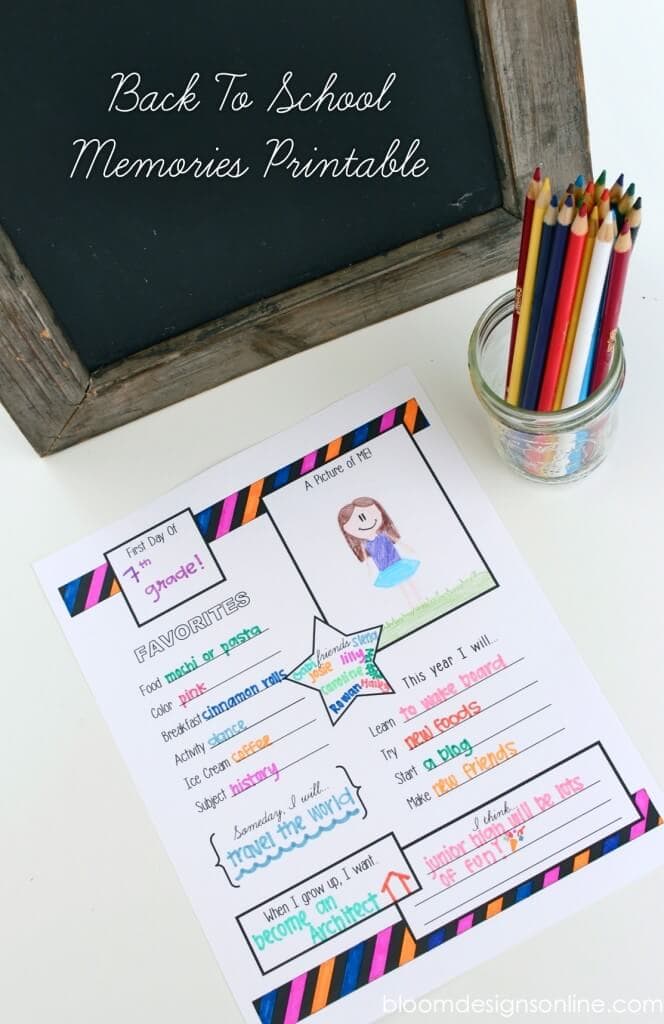 Back To School
Memories Printable
A Picture of ME!
First Day Of
7th
grade!
FAVORITES
Food mochi or pasta
Color pink
Breakfast cinnamon rolls
Activity dance
Ice Cream coffee
Subject history
friends
Josie lilly
Caroline
Rowan
This year I will...
Learn to wake board
Try new foods
Start a blog
Make new friends
Someday, I will...
travel the world
When I grow up, I want...
become an
Architect
I think...
junior high will be lots
of fun!
bloomdesignsonline.com